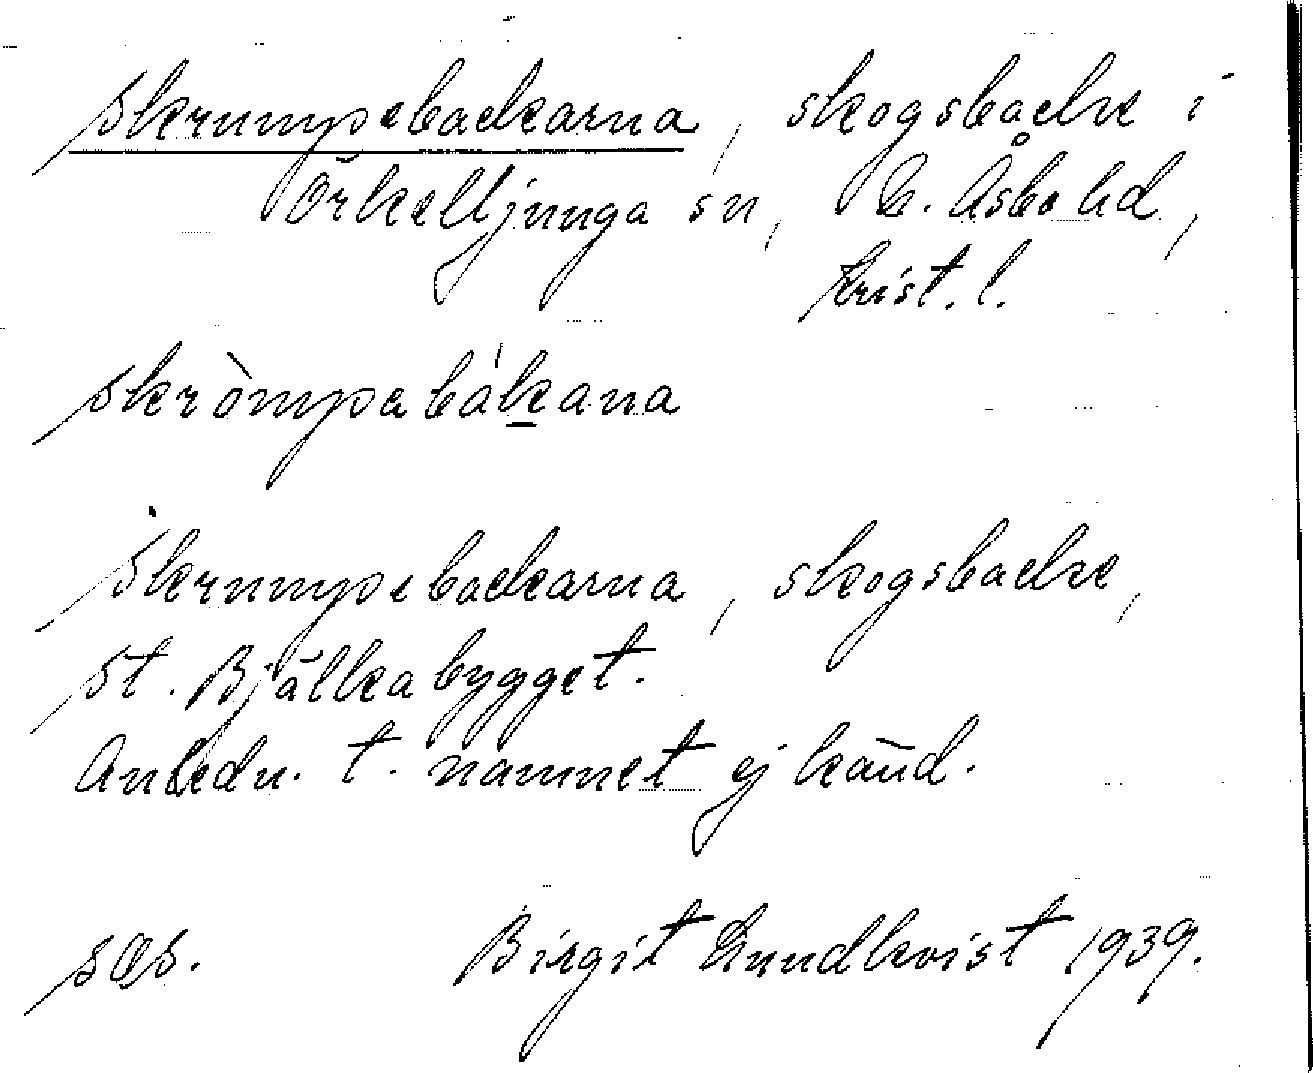 Skrumpebackarna, skogsbacke i
Örkelljunga sn, N. Åsbo hd,
Krist. l.
skròmpabák̲ana
Skrumpebackarna, skogsbacke,
St. Bjälkabygget.
Anledn. t. namnet ej känd.
Birgit Lundkvist 1939.